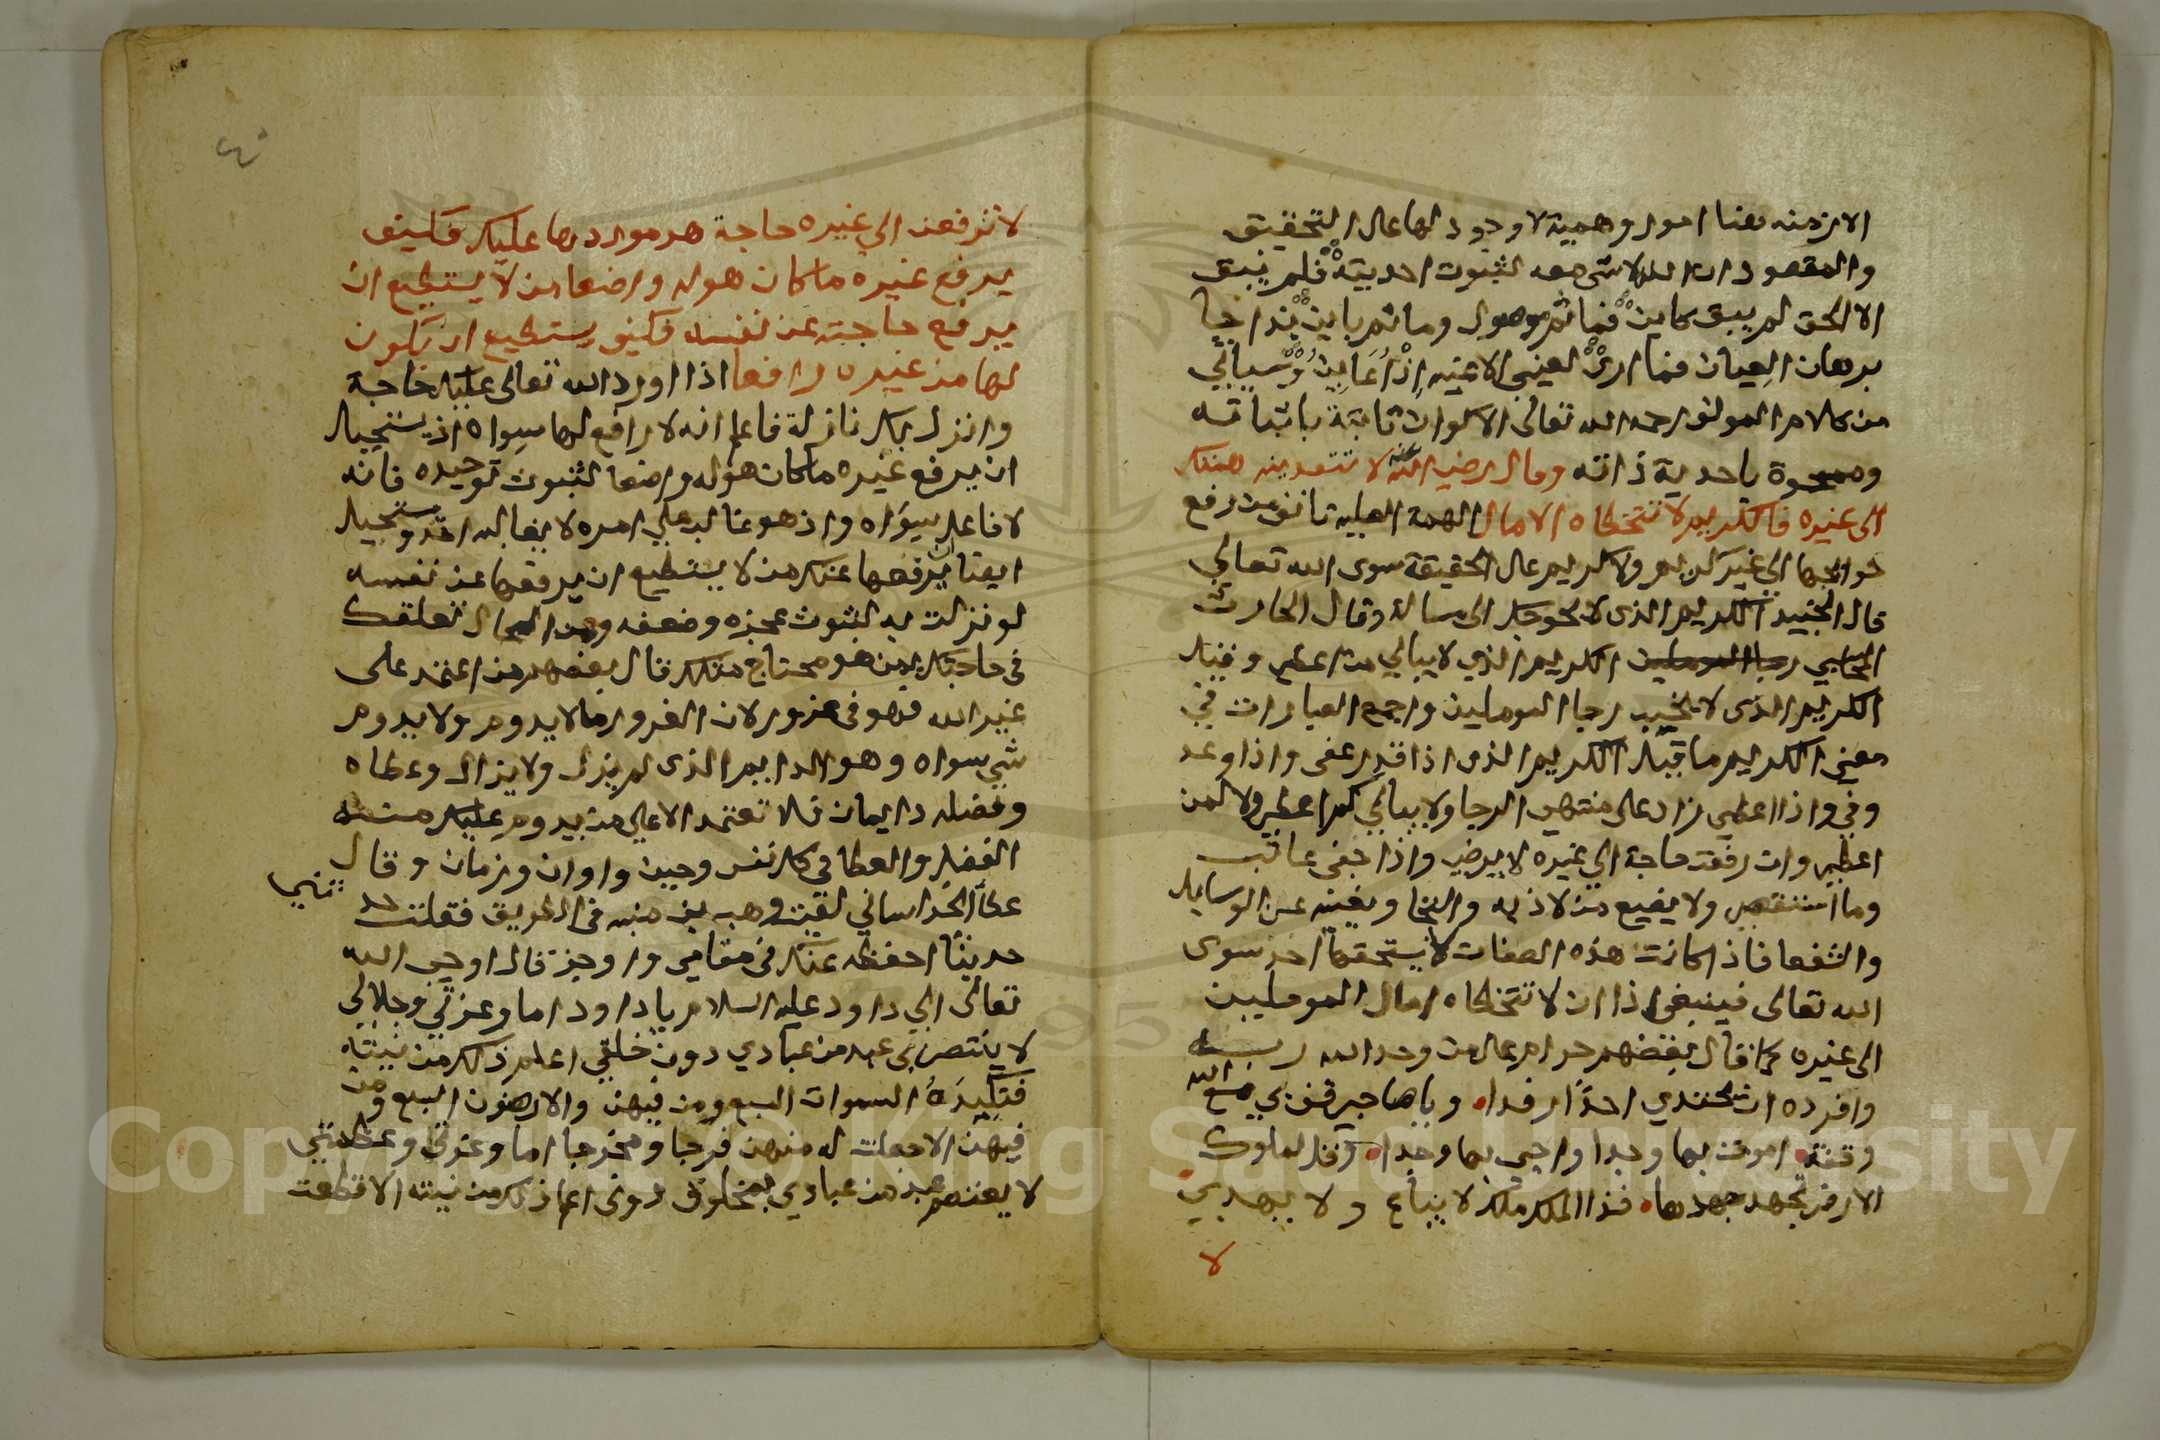 الازمنه هنا امور وهمية لا وجود لها على التحقيق
والمقصود ان الله لا شي معه لثبوت احديته فلم يبق
الا الحق لم يبق كاين فما ثم موصول وما ثم باين بذا جا
برهان العيان فما ارى لعيني الا عينه اذ اعاين وسياتي
من كلام المولف رحمه الله تعالى الاكوان ثابتة باثباته
وممحوة باحدية ذاته وقال رضي الله عنه لا تتعدين همتك
الى غيره فالكريم لا تتخطاه الامال الهمة العلية تانف من رفع
حوائجها الى غير كريم ولا كريم على الحقيقة سوى الله تعالى
قال الجنيد الكريم الذى لا يحوجك الى مسالة وقال الحارث
المحاسبي الكريم الذي لا يبالي من اعطى وقيل
الكريم الذى لا يخيب رجا المومليين واجمع العبارات في
معنى الكريم ما قيل الكريم الذى اذا قدر عفى واذا وعد
وفى واذا اعطى زاد على منتهى الرجا ولا يبالي كم اعطى ولا لمن
اعطى وان رفعت حاجة الى غيره لا يرضى واذا جفى عاتب
وما استقصى ولا يضيع من لاذ به والتجا ويغنيه عن الوسايل
والشفعا فاذا كانت هذه الصفات لا يستحقها احد سوى
الله تعالى فينبغي اذا ان لا تتخطاه امال المومليين
الى غيره كما قال بعضهم حرام على من وحد الله ربه
وافرده ان يجتدي احدا رفدا وياصاحبي قف بي مع الله
وقفة اموت بها وجدا واحيى بها وجدا وقل لملوك
الارض تجهد جهدها فذا الملك ملك لا يباع ولا يهدي
لا
٤٠
لا ترفعن الى غيره حاجة هو موردها عليك فكيف
يرفع غيره ما كان هو له واضعا من لا يستطيع ان
يرفع حاجته عن نفسه فكيف يستطيع ان يكون
لها من غيره رافعا اذا اورد الله تعالى عليك حاجة
وانزل بك نازلة فاعلم انه لا رافع لها سواه اذ يستحيل
ان يرفع غيره ما كان هو له واضعا لثبوت توحيده فانه
لا فاعل سواه واذ هو غالب على امره لا يغالبه احد ويستحيل
ايضا ان يرفعها عنك من لا يستطيع ان يرفعها عن نفسه
لو نزلت به لثبوت عجزه وضعفه ومن المحال تعلقك
فى حاجتك بمن هو محتاج مثلك قال بعضهم من اعتمد على
غير الله فهو فى غرور لان الغرور ما لا يدوم ولا يدوم
شي سواه وهو الدايم الذى لم يزل ولا يزال وعطاه
وفضله دايمان فلا تعتمد الا على من يدوم عليك منه
الفضل والعطا في كل نفس وحين واوان وزمان وقال
عطا الخراساني لقيت وهب بن منبه فى الطريق فقلت حدثني
حديثا احفظه عنك في مقامي واوجز قال اوحى الله
تعالى الى داود عليه السلام يا داود اما وعزتي وجلالي
لا ينتصر بي عبد من عبادي دون خلقي اعلم ذلك من نيته
فتكيده السموات السبع ومن فيهن والارضون السبع ومن
فيهن الا جعلت له منهن فرجا ومخرجا اما وعزتي وعظمتي
لا يعتصم عبد من عبادي بمخلوق دوني اعلم ذلك من نيته الا قطعت
Copyright © King Saud University